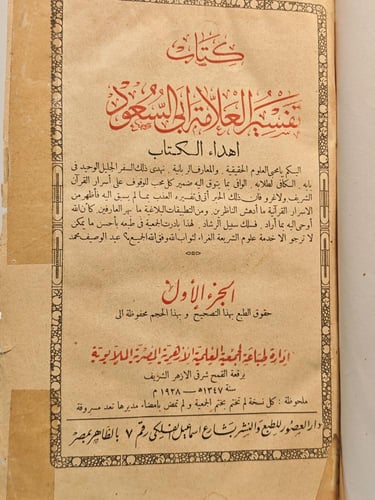 كتاب
تفسير العلامة أبى السعود
اهداء الكتاب
اليكم يامحبى العلوم الحقيقية. والمعارف الربانية. نهدى ذلك السفر الجليل الوحيد فى
بابه. الكافى لطلابه. الوافى بما يتوق اليه ضمير كل محب للوقوف على أسرار القرآن
الشريف ولا غرو فان ذلك الحبر أتى فى تفسيره العذب بما لم يسبق اليه فأظهر من
الاسرار القرآنية ما أدهش الناظرين. ومن التطبيقات البلاغية ما بهر العارفين كأن الله
أوحى اليه بما أراد. فسلك سبيل الرشاد. لهذا بادرت الجمعية فى طبعه بأحسن ما يمكن
لا ترجو الا خدمة علوم الشريعة الغراء لثواب الله وفق الله الجميع؟ عبد الوصيف محمد
الجزء الأول
حقوق الطبع بهذا التصحيح وبهذا الحجم محفوظة الى
ادارة طباعة الجمعية العلمية الأزهرية المصرية الملايوية
برقعة القمح شرقى الازهر الشريف
سنة ١٣٤٧ هـ - ١٩٢٨ م
ملحوظة: كل نسخة لم تختم بختم الجمعية ولم تمض بامضاء مديرها تعد مسروقة
دار العصور للطبع والنشر بشارع اسماعيل الفلكى رقم ٧ بالظاهر بمصر